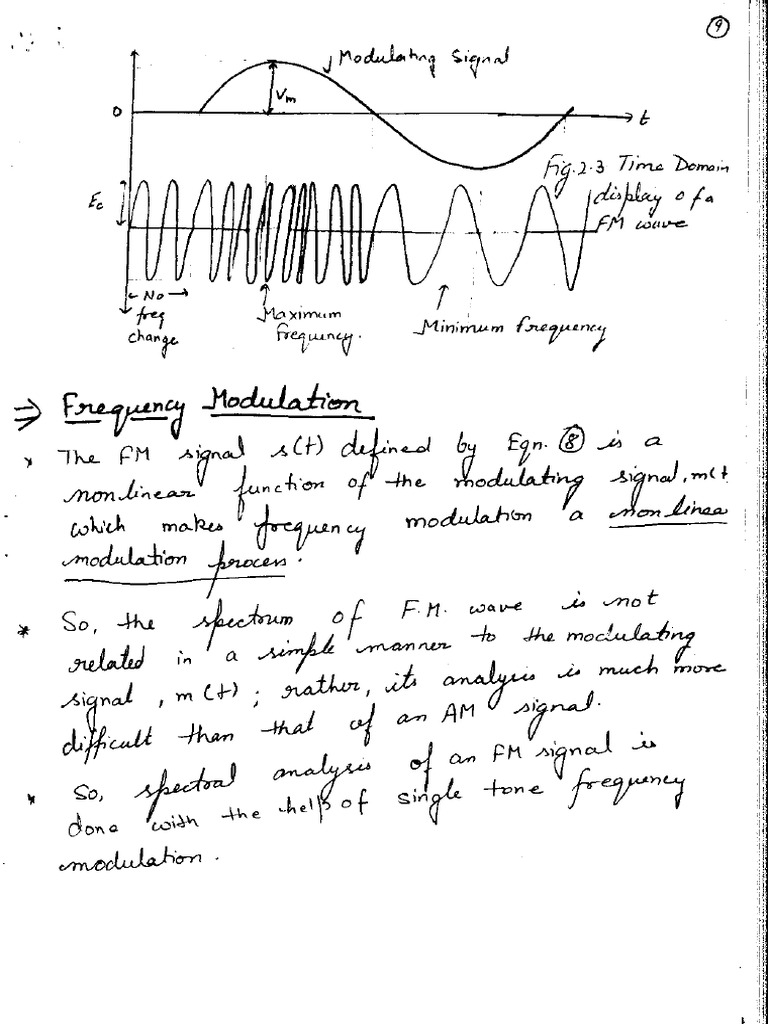 9
Modulating Signal
Vm
0
t
Fig. 2.3 Time Domain
display of a
FM wave
Ec
No
freq
change
Maximum
frequency.
Minimum frequency
⇒ Frequency Modulation
* The FM signal s(t) defined by Eqn. 8 is a
nonlinear function of the modulating signal, m(t
which makes frequency modulation a non linea
modulation process.
* So, the spectrum of F.M. wave is not
related in a simple manner to the modulating
signal, m(t); rather, its analysis is much more
difficult than that of an AM signal.
* So, spectral analysis of an FM signal is
done with the help of single tone frequency
modulation.